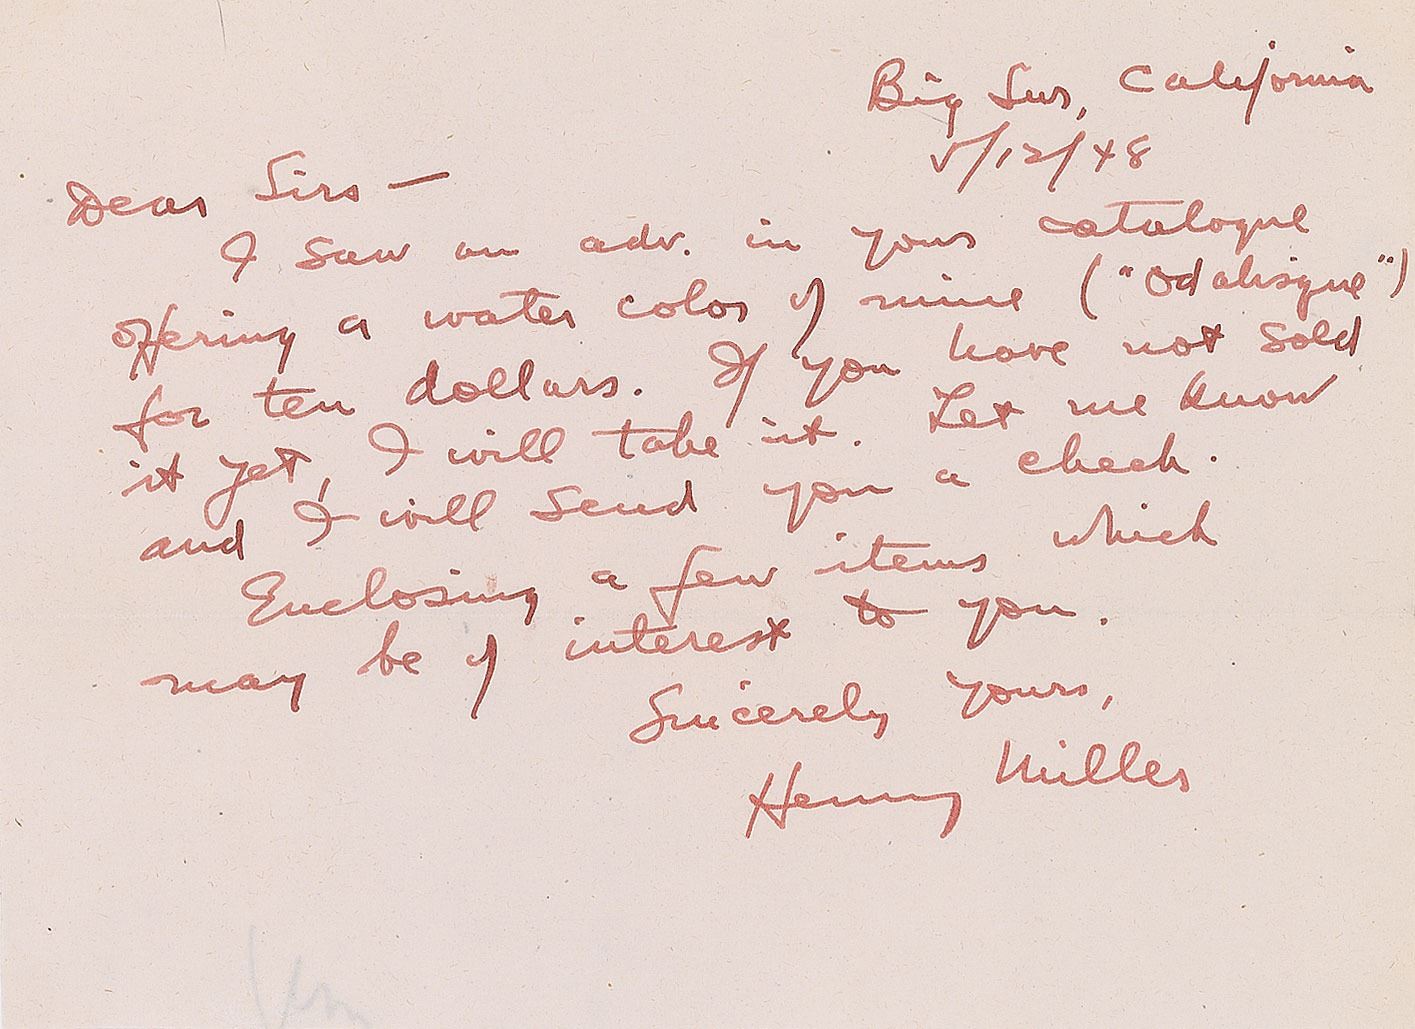 Big Sur, California
5/12/48
Dear Sirs —
I saw an adv. in your catalogue
offering a water color of mine ("Odalisque")
for ten dollars. If you have not sold
it yet, I will take it. Let me know
and I will send you a check.
Enclosing a few items which
may be of interest to you.
Sincerely yours,
Henry Miller